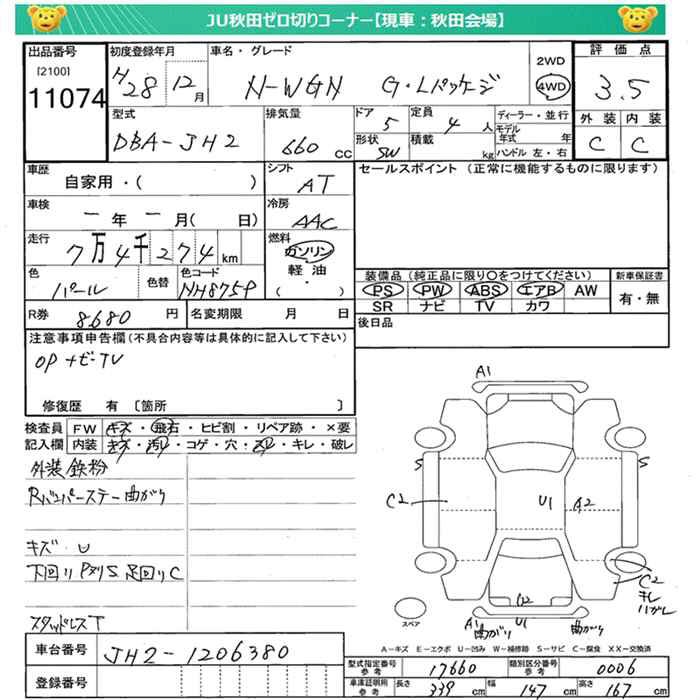 JU秋田ゼロ切りコーナー【現車：秋田会場】
出品番号 初度登録年月 車名・グレード 2WD 評価点
[2100] H28 12月 N-WGN G・Lパッケージ 4WD 3.5
11074
型式 排気量 ドア 定員 ディーラー・並行 外装 内装
DBA-JH2 660cc 5 4人 モデル年式 年 C C
形状 積載 ハンドル 左・右
SW kg
車歴 シフト セールスポイント（正常に機能するものに限ります）
自家用・（ ） AT
車検 冷房
ー年ー月（ 日） AAC
走行 燃料
7万4千274km ガソリン
軽油・（ ）
色 色替 色コード 装備品（純正品に限り○をつけてください） 新車保証書
パール NH875P PS PW ABS エアB AW 有・無
SR ナビ TV カワ
R券 8,680円 名変期限 月 日 後日品
注意事項申告欄（不具合内容等は具体的に記入して下さい）
OP ナビ-TV
修復歴 有［箇所 ］
検査員 FW キズ・飛石・ヒビ割・リペア跡・×要
記入欄 内装 キズ・汚れ・コゲ・穴・スレ・キレ・破レ
外装鉄粉
Rバンパーステー曲がり
キズ・U
下回りPズリS 足回りC
スタッドレスT
A1
S S
C2 U1 A2
C2
キレ
ハガレ
U2
A1 U1
曲がり 曲がり
スペア
A－キズ E－エクボ U－凹み W－補修跡 S－サビ C－腐食 XX－交換済
車台番号 JH2-1206380
登録番号
型式指定番号参考 17660 類別区分番号参考 0006
車庫証明用参考 長さ 339cm 幅 147cm 高さ 167cm